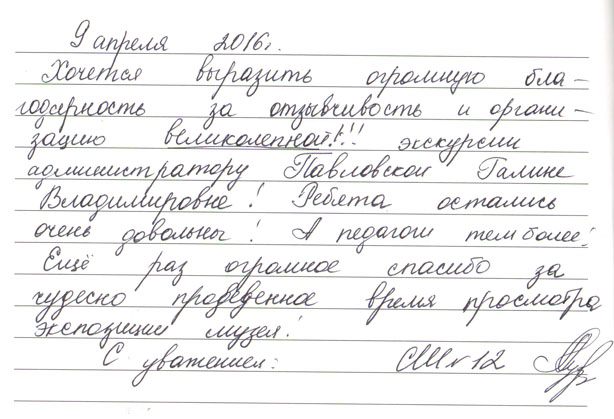 9 апреля 2016г.
Хочется выразить огромную бла-
годарность за отзывчивость и органи-
зацию великолепной!!! экскурсии
администратору Павловской Галине
Владимировне! Ребята остались
очень довольны! А педагоги тем более!
Ещё раз огромное спасибо за
чудесно проведенное время просмотра
экспозиции музея!
С уважением: СШ № 12